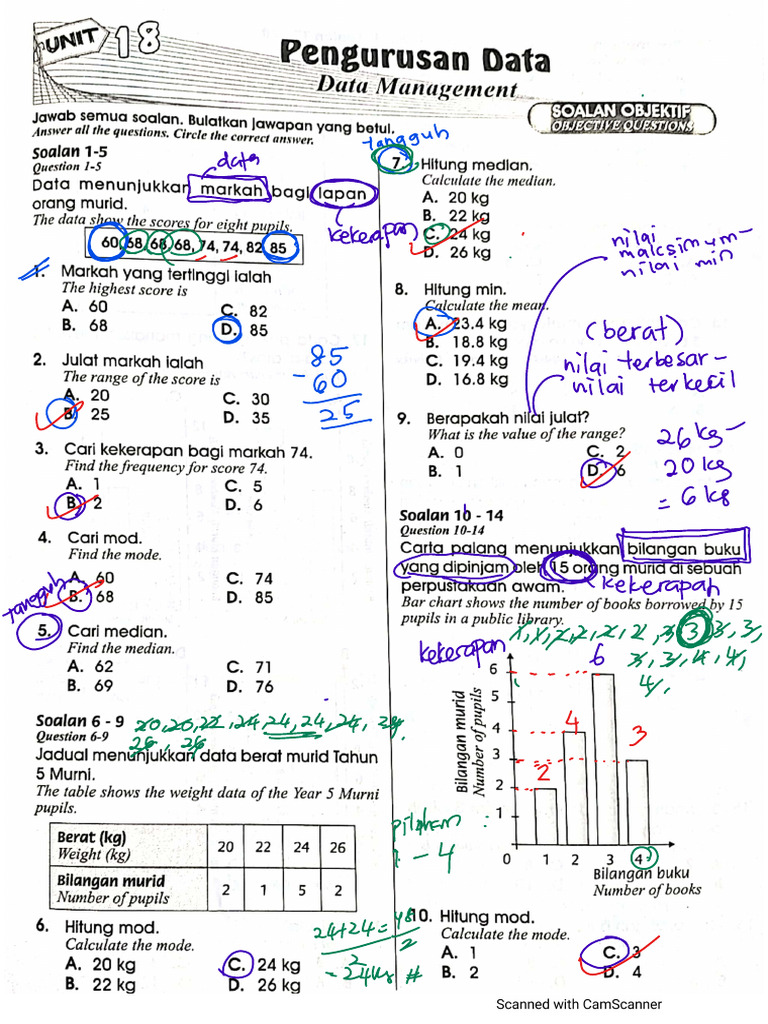 UNIT 18
Pengurusan Data
Data Management
SOALAN OBJEKTIF
OBJECTIVE QUESTIONS
Jawab semua soalan. Bulatkan jawapan yang betul.
Answer all the questions. Circle the correct answer.
Soalan 1-5
Question 1-5
data
Data menunjukkan markah bagi lapan
orang murid.
The data show the scores for eight pupils.
kekerapan
60, 68, 68, 68, 74, 74, 82, 85
1. Markah yang tertinggi ialah
The highest score is
A. 60 C. 82
B. 68 D. 85
2. Julat markah ialah
The range of the score is
A. 20 C. 30
B. 25 D. 35
85
- 60
25
3. Cari kekerapan bagi markah 74.
Find the frequency for score 74.
A. 1 C. 5
B. 2 D. 6
4. Cari mod.
Find the mode.
A. 60 C. 74
B. 68 D. 85
tangguh
5. Cari median.
Find the median.
A. 62 C. 71
B. 69 D. 76
Soalan 6 - 9
Question 6-9
20, 20, 22, 24, 24, 24, 24, 24,
26, 26
Jadual menunjukkan data berat murid Tahun
5 Murni.
The table shows the weight data of the Year 5 Murni
pupils.
Berat (kg) 20 22 24 26
Weight (kg)
Bilangan murid 2 1 5 2
Number of pupils
6. Hitung mod.
Calculate the mode.
A. 20 kg C. 24 kg
B. 22 kg D. 26 kg
24+24 = 48
2 2
= 24kg #
tangguh
7. Hitung median.
Calculate the median.
A. 20 kg
B. 22 kg
C. 24 kg
D. 26 kg
nilai
maksimum-
nilai min
8. Hitung min.
Calculate the mean.
A. 23.4 kg
B. 18.8 kg
C. 19.4 kg
D. 16.8 kg
(berat)
nilai terbesar -
nilai terkecil
9. Berapakah nilai julat?
What is the value of the range?
A. 0 C. 2
B. 1 D. 6
26 kg -
20 kg
= 6 kg
Soalan 10 - 14
Question 10-14
Carta palang menunjukkan bilangan buku
yang dipinjam oleh 15 orang murid di sebuah
perpustakaan awam.
kekerapan
Bar chart shows the number of books borrowed by 15
pupils in a public library.
1, 1, 2, 2, 2, 2, 3, 3, 3, 3,
3, 3, 4, 4,
4,
kekerapan
Bilangan murid
Number of pupils
6
5
4
3
2
1
0 1 2 3 4
2 4 6 3
Bilangan buku
Number of books
1 - 4
10. Hitung mod.
Calculate the mode.
A. 1 C. 3
B. 2 D. 4
Scanned with CamScanner